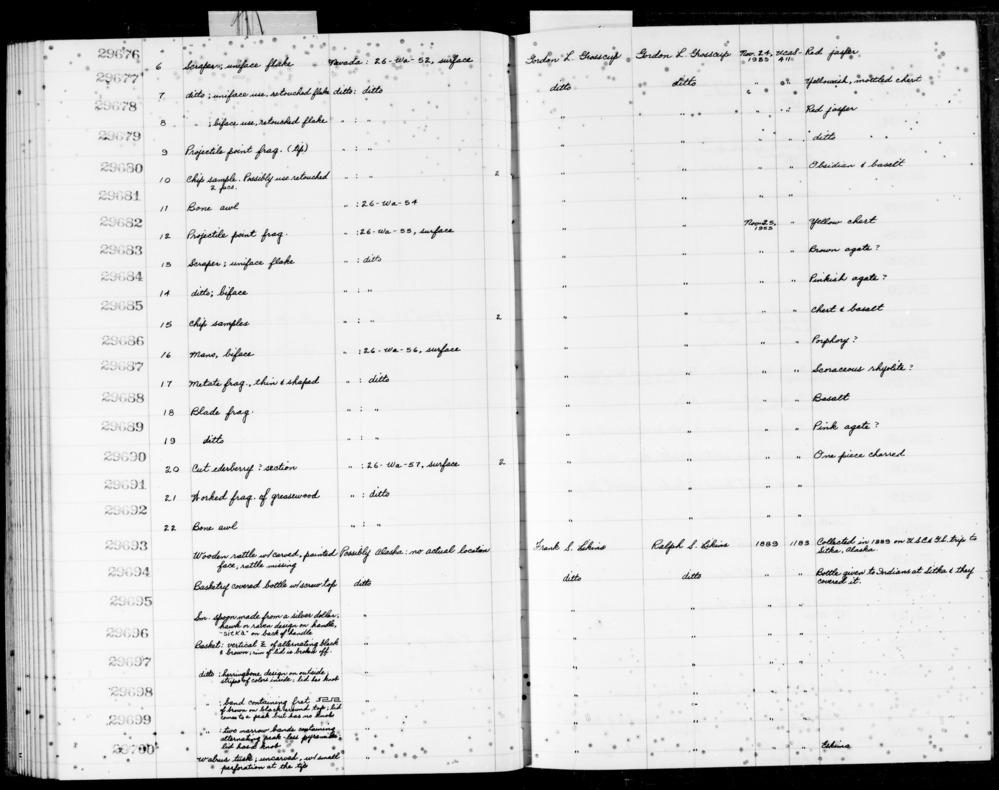 29676 6 Scraper; uniface flake Nevada: 26-Wa-52, surface Gordon L. Grosscup Gordon L. Grosscup Nov. 24, 1955 UCAS-411 Red jasper
29677 7 ditto; uniface use, retouched flake ditto: ditto ditto ditto " " Yellowish, mottled chert
29678 8 " ; biface use, retouched flake " : " " " " " Red jasper
29679 9 Projectile point frag. (tip) " : " " " " " ditto
29680 10 Chip sample. Possibly use retouched " : " 2 " " " " Obsidian & basalt
2 pcs.
29681 11 Bone awl " : 26-Wa-54 " " " "
29682 12 Projectile point frag. " : 26-Wa-55, surface " " Nov. 25, 1955 " Yellow chert
29683 13 Scraper; uniface flake " : ditto " " " " Brown agate?
29684 14 ditto; biface " : " " " " " Pinkish agate?
29685 15 Chip samples " : " 2 " " " " Chert & basalt
29686 16 Mano, biface " : 26-Wa-56, surface " " " " Porphory?
29687 17 Metate frag., thin & shaped " : ditto " " " " Scoraceous rhyolite?
29688 18 Blade frag. " : " " " " " Basalt
29689 19 ditto " : " " " " " Pink agate?
29690 20 Cut ederberry? section " : 26-Wa-57, surface 2 " " " " One piece charred
29691 21 Worked frag. of greasewood " : ditto " " " "
29692 22 Bone awl " : " " " " "
29693 Wooden rattle w/carved, painted Possibly Alaska: no actual location Frank S. Ralph S. 1889 1183 Collected in 1889 on U.S.C.& G.S. trip to
face, rattle missing Sitka, Alaska.
29694 Basketry covered bottle w/screw top ditto ditto ditto " " Bottle given to Indians at Sitka & they
covered it.
29695 Sm. spoon made from a silver dollar; " " " " "
hawk or raven design on handle,
"SITKA" on back of handle
29696 Basket: vertical of alternating black " " " " "
& brown; rim of lid is broken off.
29697 ditto: herringbone design on outside, " " " " "
stripes of colors inside; lid has knob
29698 " : band containing fret " " " " "
of brown on black around top; lid
comes to a peak but has no knob
29699 " : two narrow bands containing " " " " "
alternating peak-less pyramids;
lid has a knob
29700 Walrus tusk; uncarved, w/small " " " " "
perforation at the tip